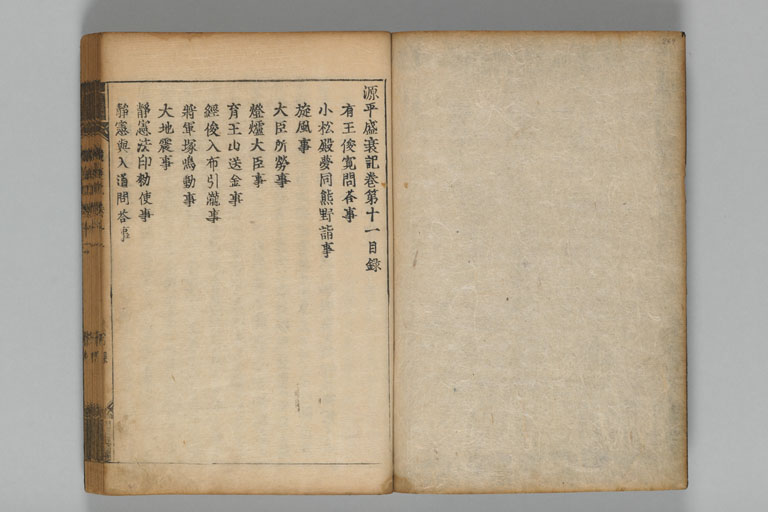 源平盛衰記巻第十一目録
有王俊寛問荅事
小松殿夢同熊野詣事
旋風事
大臣所勞事
燈爐大臣事
育王山送金事
經俊入布引瀧事
將軍塚鳴動事
大地震事
靜憲法印勅使事
靜憲與入道問荅事